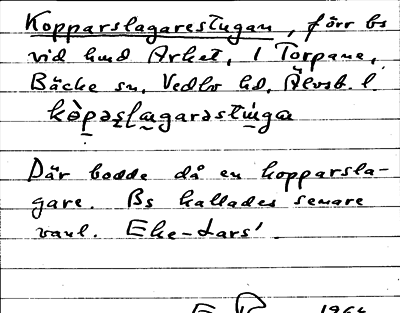 Kopparslagarestugan, förr bs
vid hmd Arket, 1 Torpane,
Bäcke sn, Vedbo hd, Älvsb. l.
kòpəʂl̥agarəstúga
Där bodde då en kopparsla-
gare. Bs kallades senare
vanl. Eke-Lars'.
1964